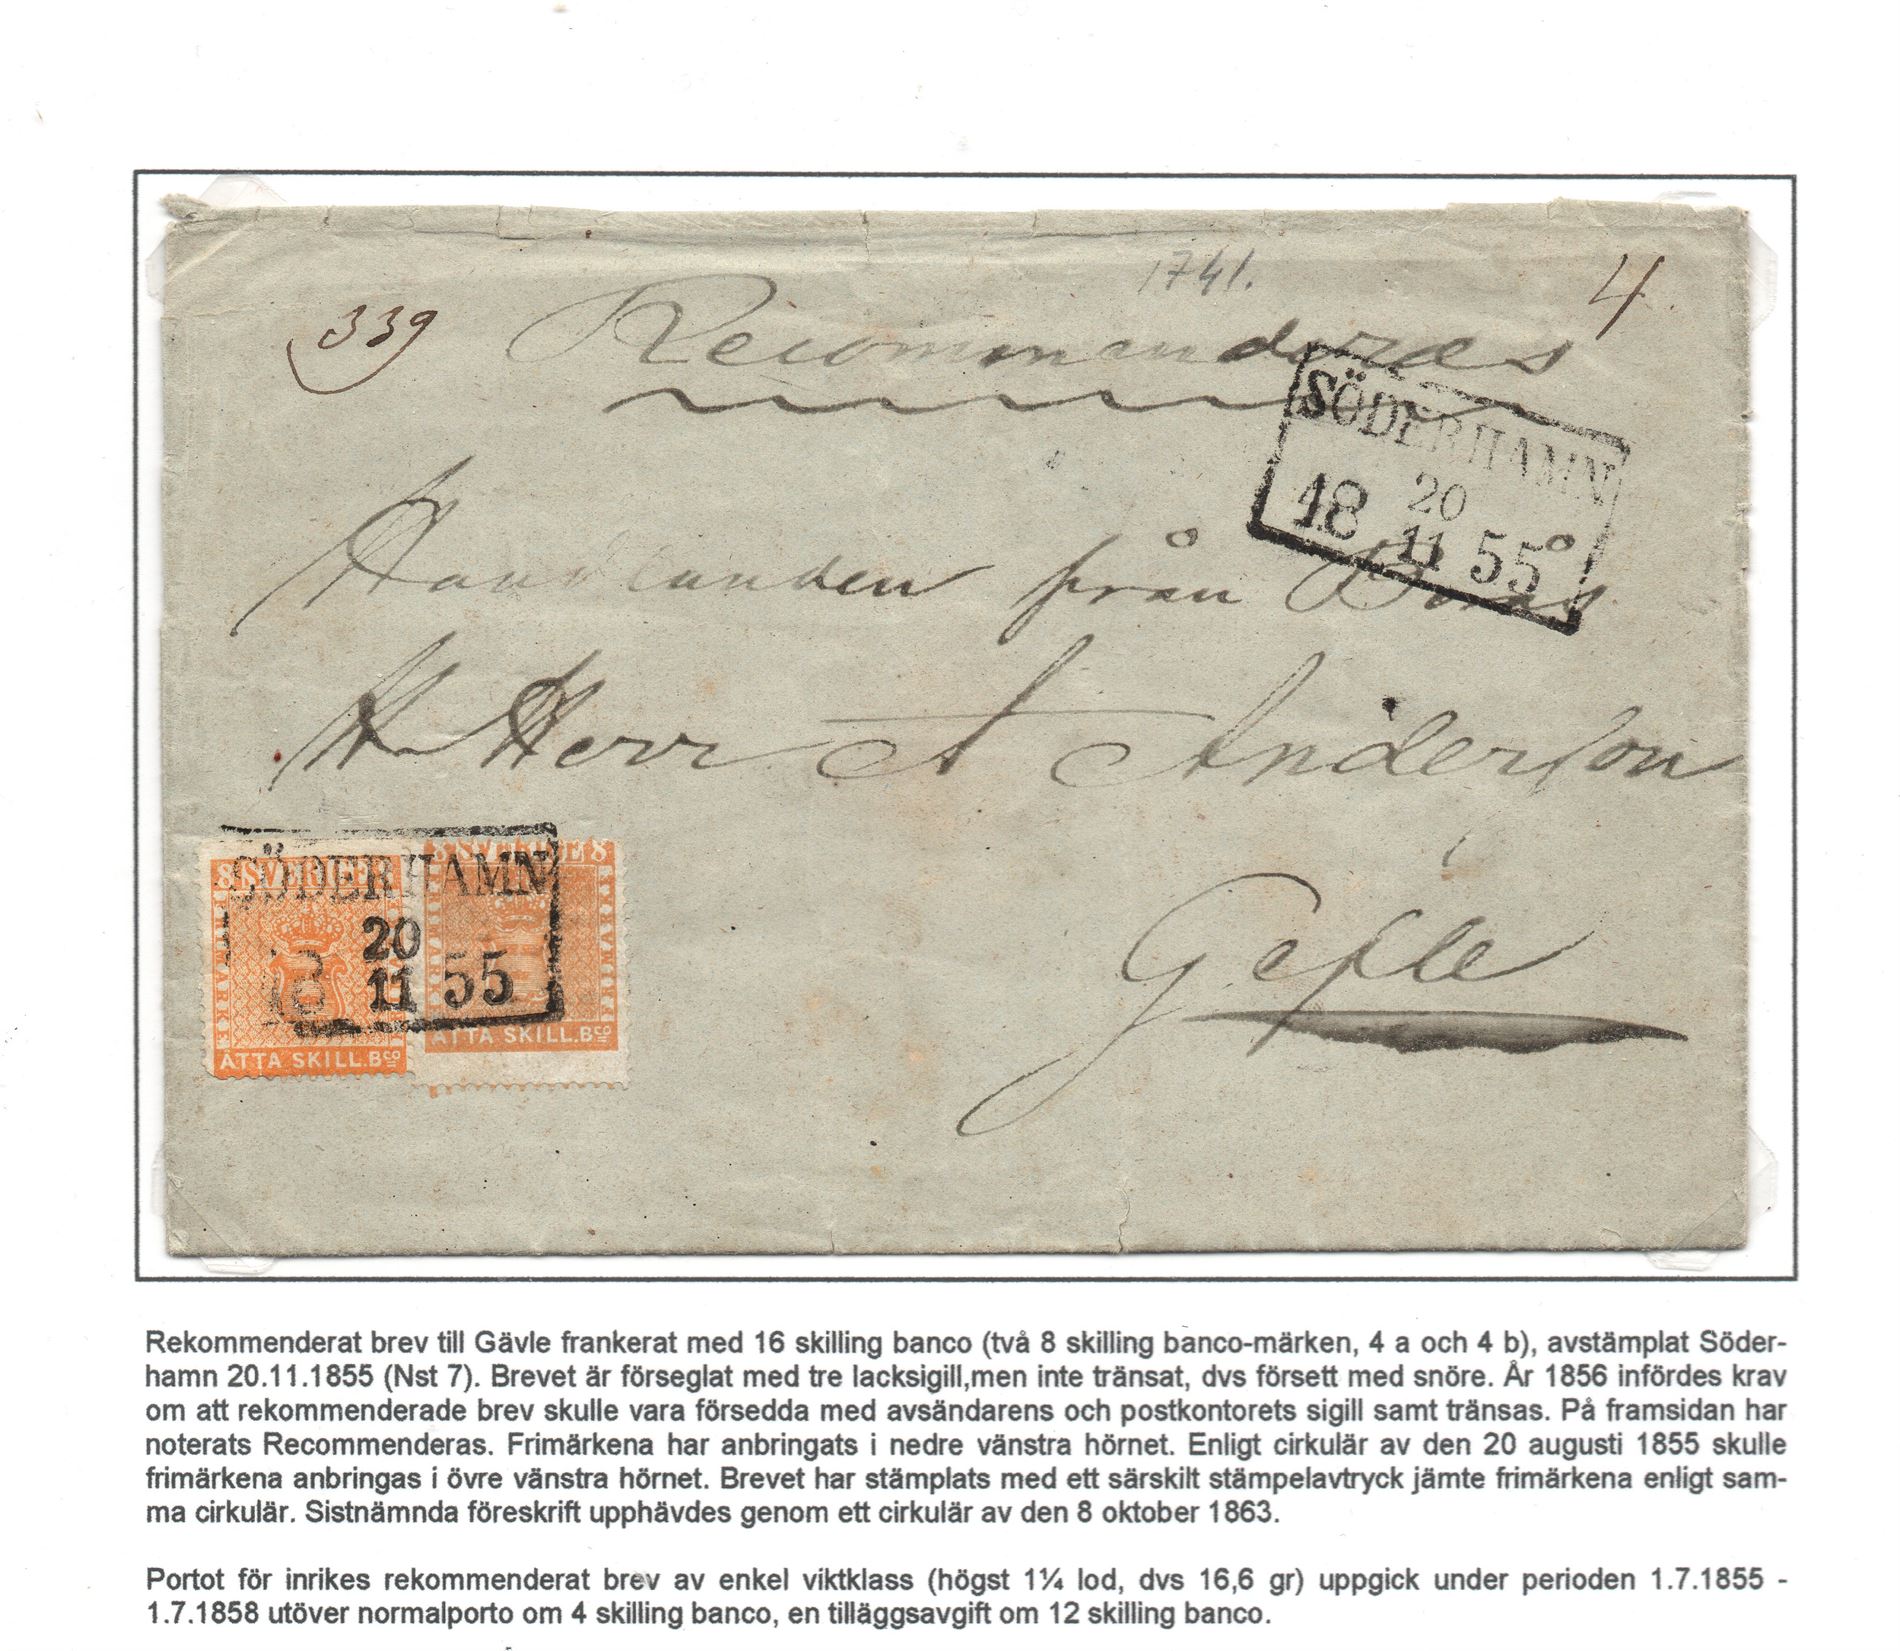 1741.
4
339
Recommenderas
SÖDERHAMN
20
18 11 55
Handlanden från Borås
H Herr A Anderson
8 SVERIGE 8
8 SVERIGE 8
SÖDERHAMN
20
18 11 55
ÅTTA SKILL.Bco
ÅTTA SKILL.Bco
Gefle
Rekommenderat brev till Gävle frankerat med 16 skilling banco (två 8 skilling banco-märken, 4 a och 4 b), avstämplat Söder-
hamn 20.11.1855 (Nst 7). Brevet är förseglat med tre lacksigill,men inte tränsat, dvs försett med snöre. År 1856 infördes krav
om att rekommenderade brev skulle vara försedda med avsändarens och postkontorets sigill samt tränsas. På framsidan har
noterats Recommenderas. Frimärkena har anbringats i nedre vänstra hörnet. Enligt cirkulär av den 20 augusti 1855 skulle
frimärkena anbringas i övre vänstra hörnet. Brevet har stämplats med ett särskilt stämpelavtryck jämte frimärkena enligt sam-
ma cirkulär. Sistnämnda föreskrift upphävdes genom ett cirkulär av den 8 oktober 1863.
Portot för inrikes rekommenderat brev av enkel viktklass (högst 1¼ lod, dvs 16,6 gr) uppgick under perioden 1.7.1855 -
1.7.1858 utöver normalporto om 4 skilling banco, en tilläggsavgift om 12 skilling banco.